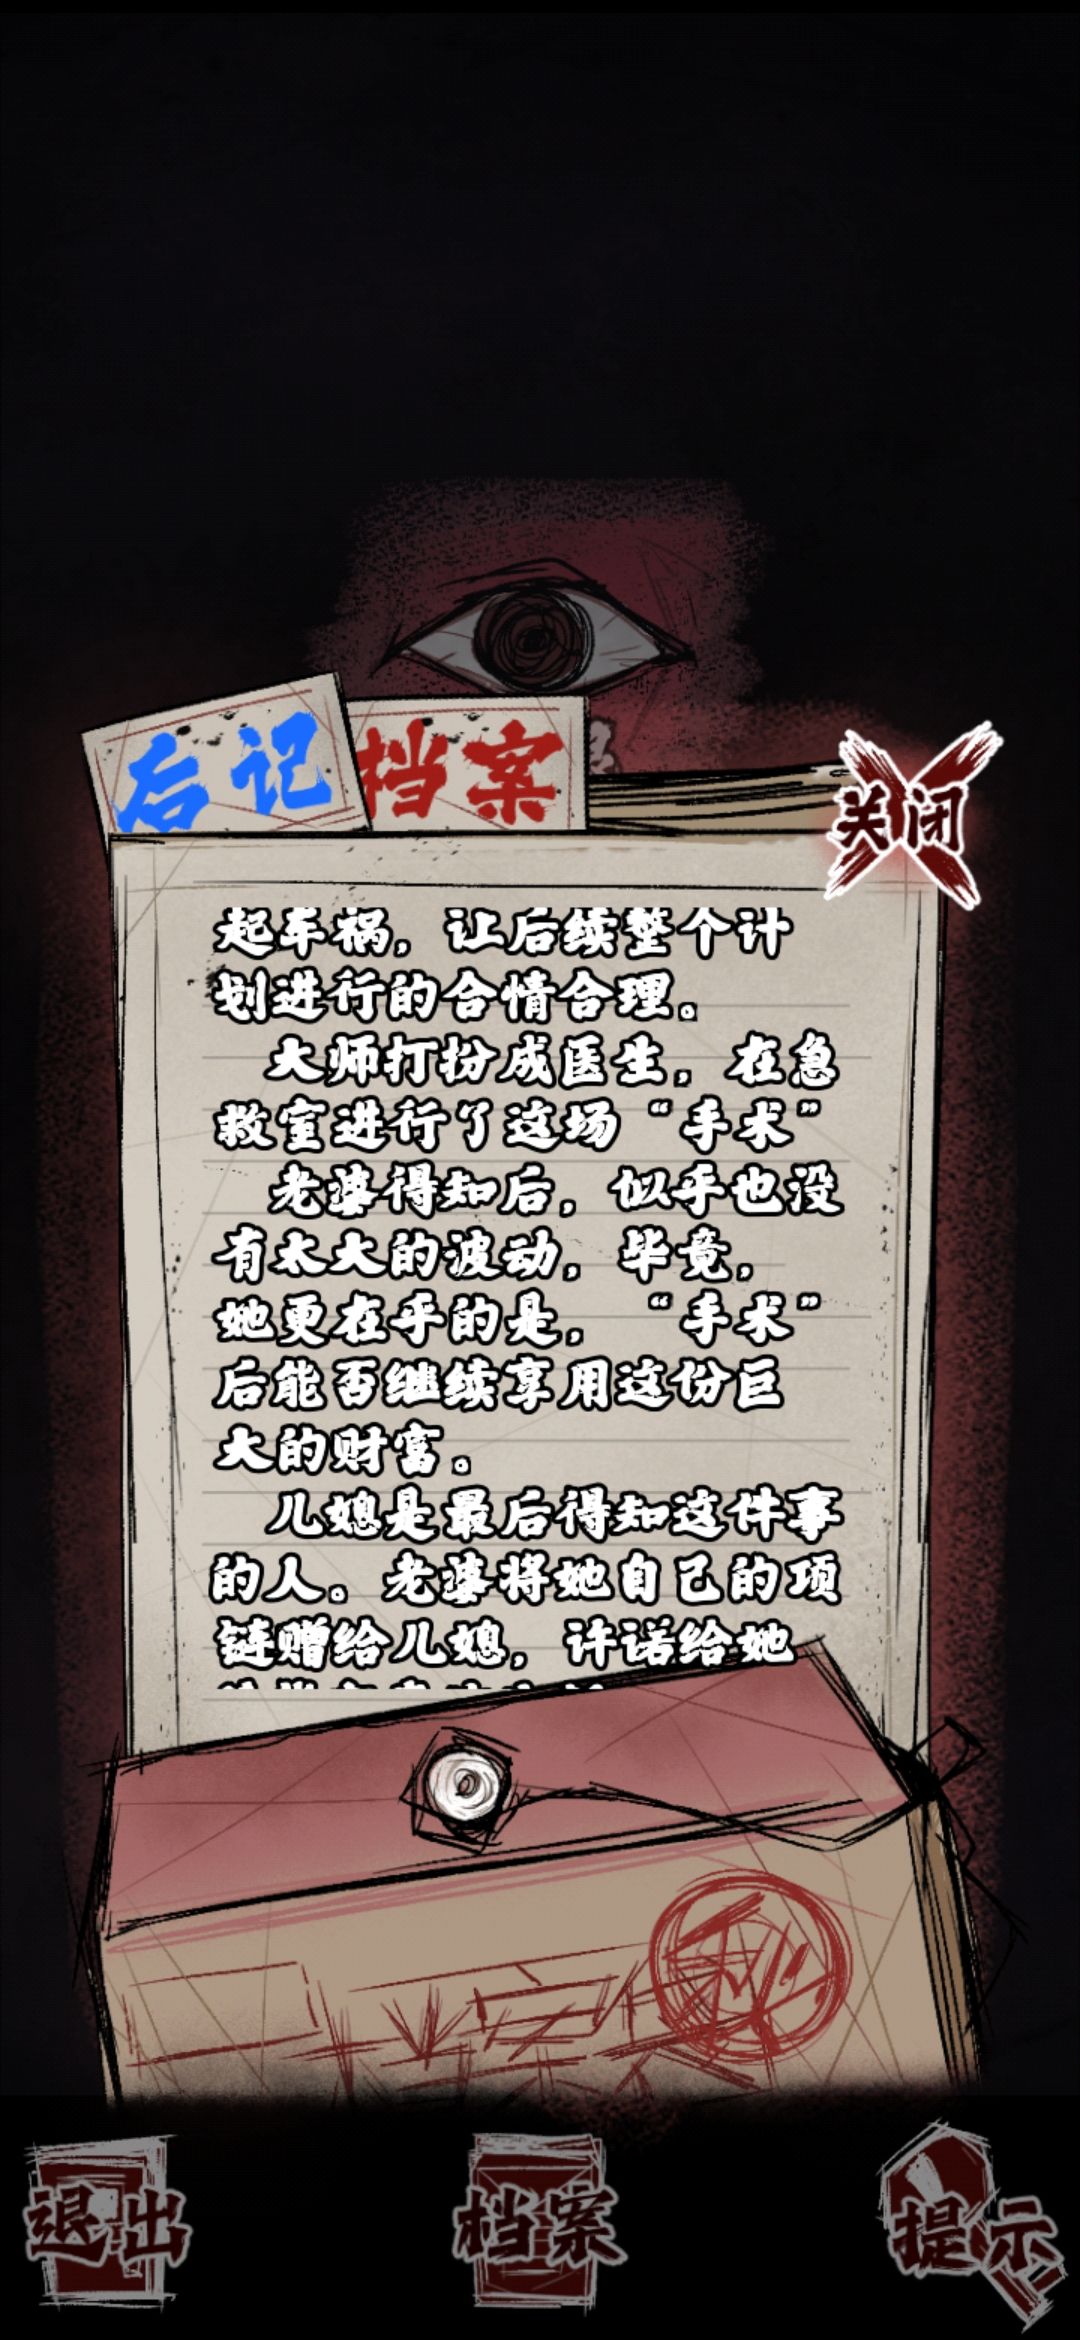 后记
档案
关闭
起车祸，让后续整个计
划进行的合情合理。
大师打扮成医生，在急
救室进行了这场“手术”
老婆得知后，似乎也没
有太大的波动，毕竟，
她更在乎的是，“手术”
后能否继续享用这份巨
大的财富。
儿媳是最后得知这件事
的人。老婆将她自己的项
链赠给儿媳，许诺给她
退出
档案
提示